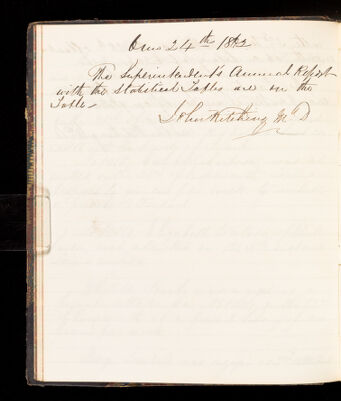 24th 1872
The Superintendent's Annual Report
with the Statistical Tables are on the
Table
John Kitching M.D